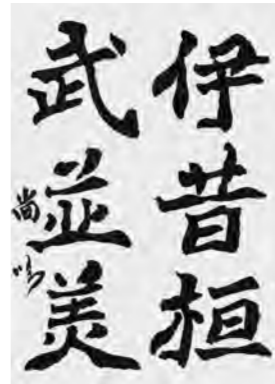 伊昔桓
武並美
尚鳴